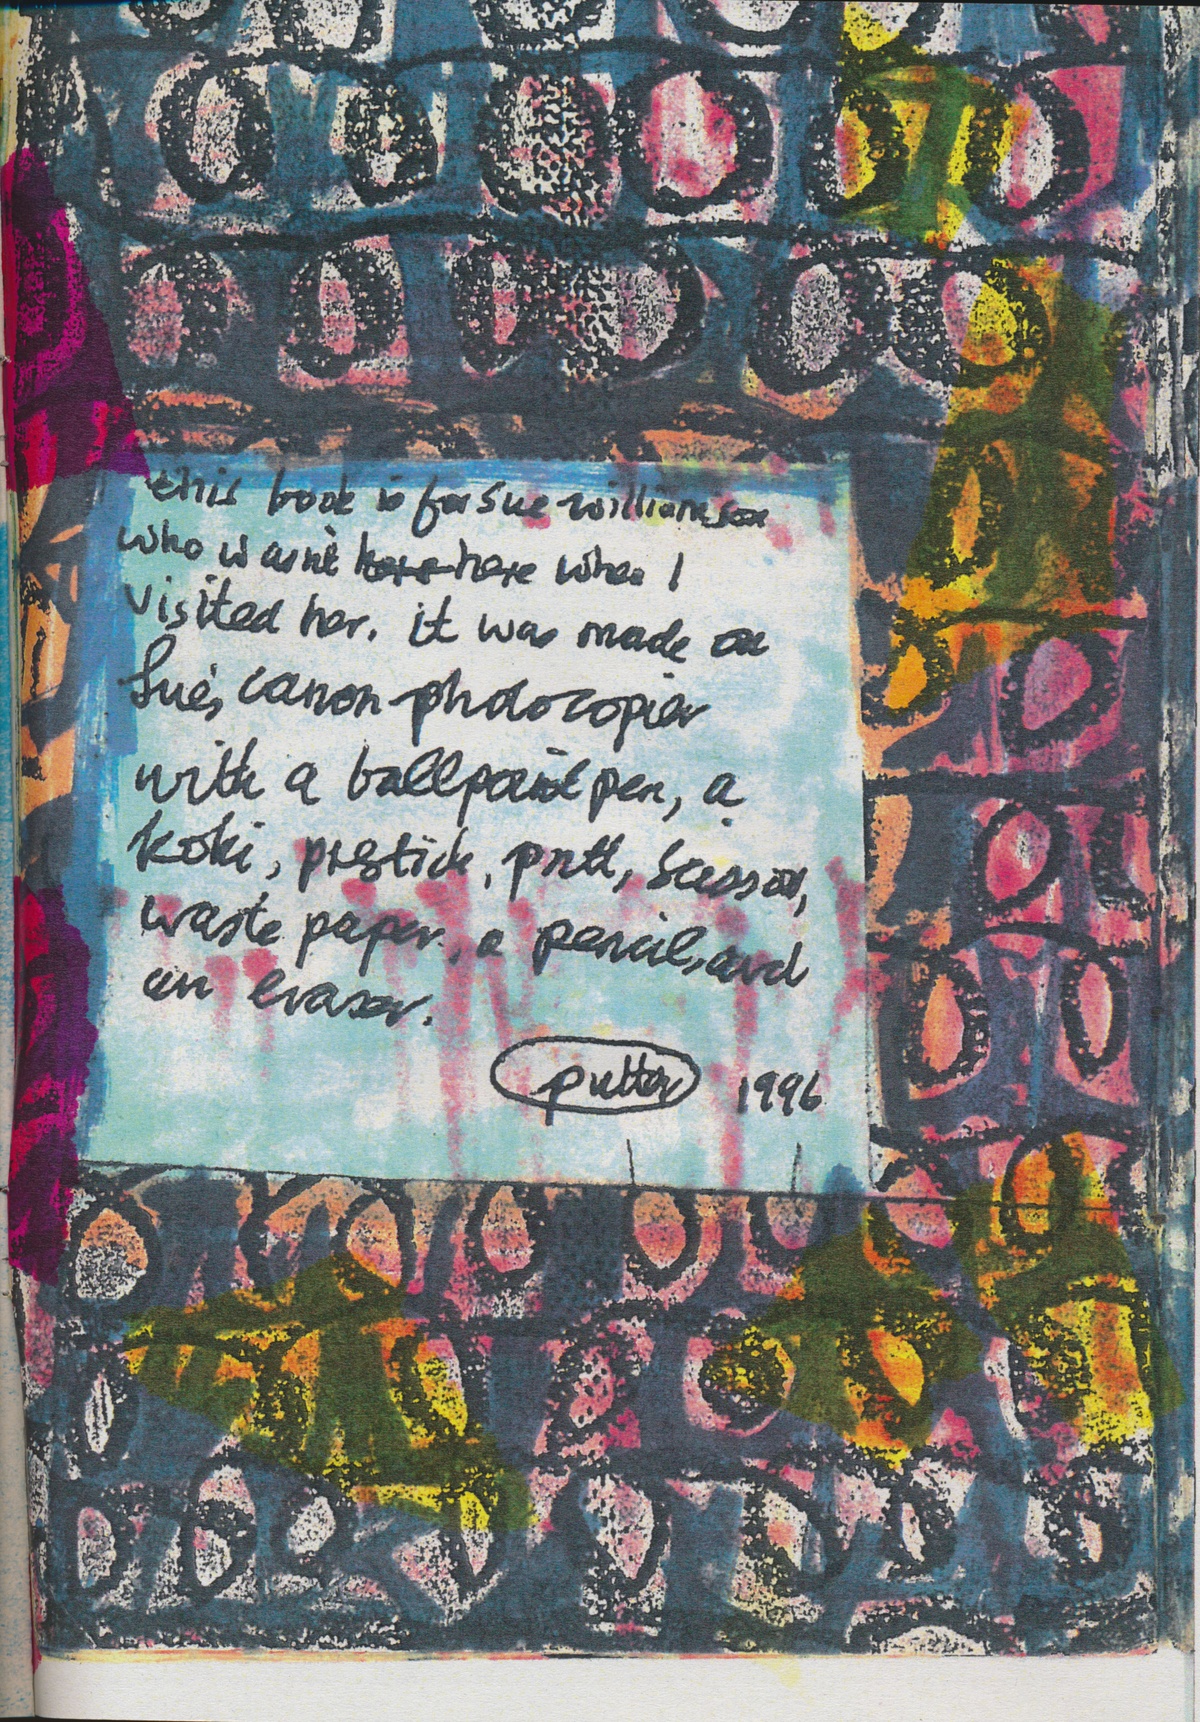 this book is for Sue williamson
who wasn't here when I
visited her. it was made on
Sue's canon photocopier
with a ballpoint pen, a
koki, prestick, pritt, scissors,
waste paper, a pencil, and
an eraser.
putter 1996